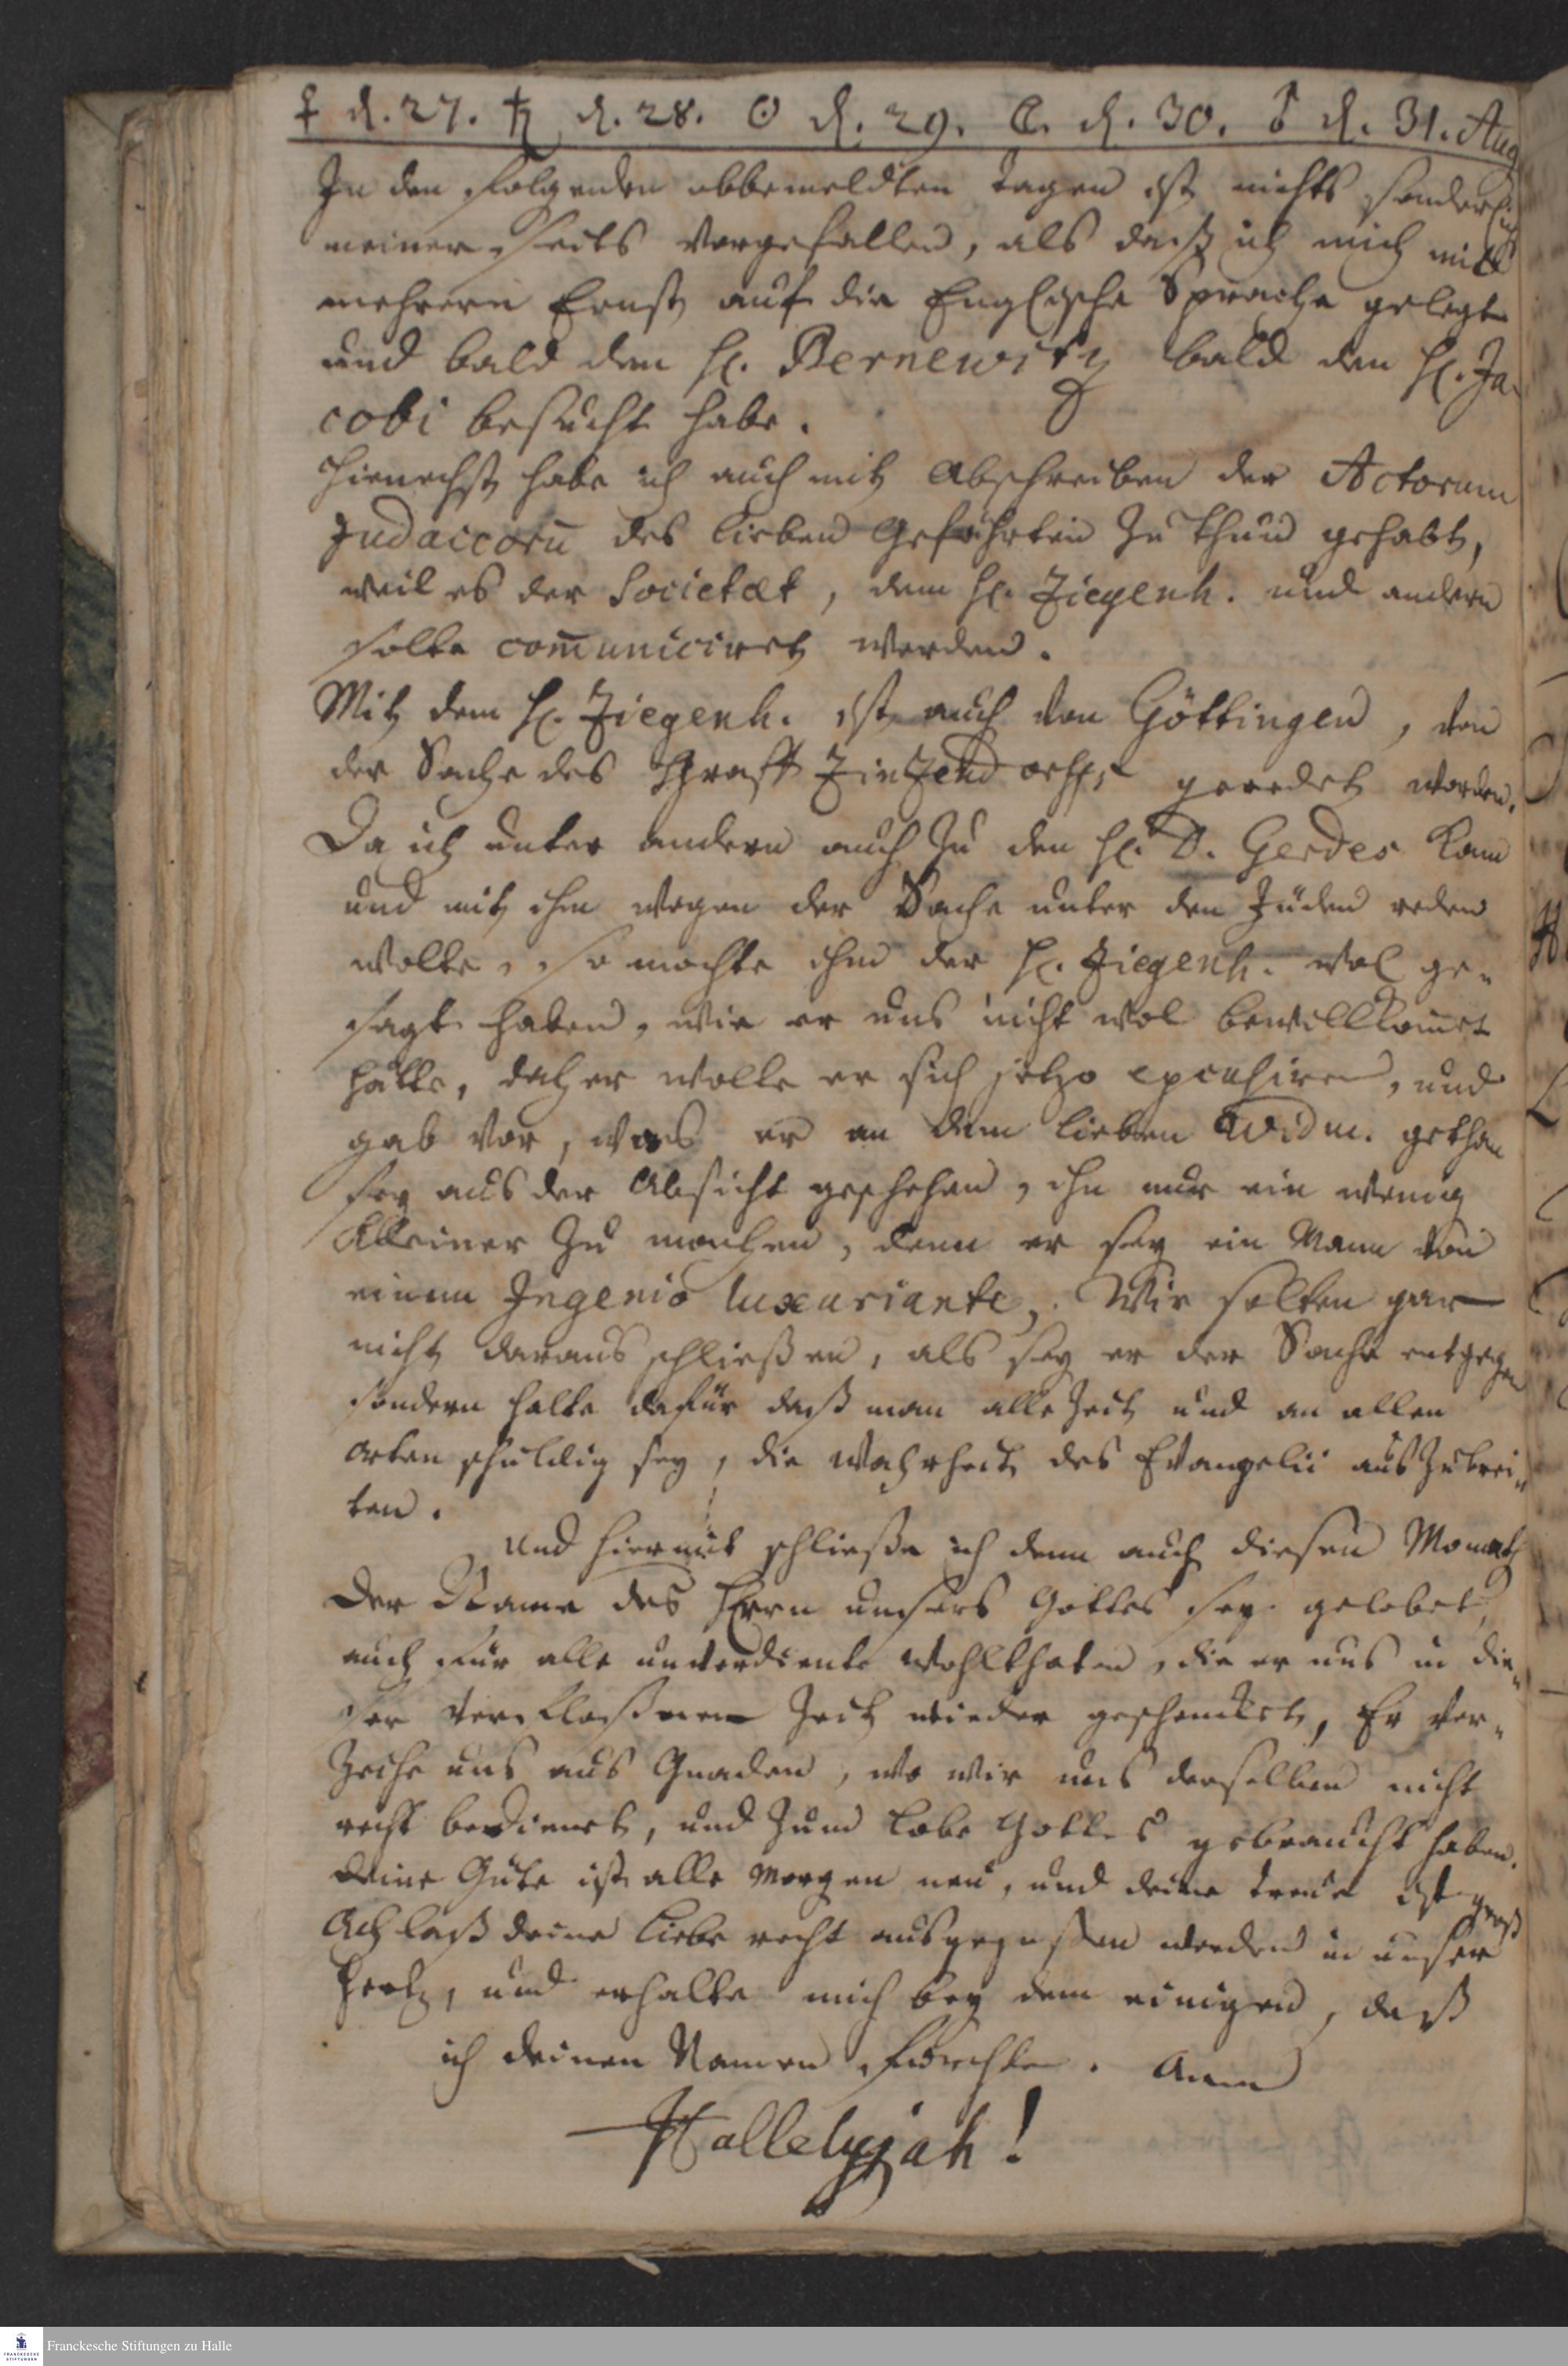 ♀ d. 27. ♄ d. 28. ☉ d. 29. ☾. d. 30. ♂ d. 31. Aug
In den folgenden obbemeldten Tagen ist nichts sonderlich
meiner seits vorgefallen, als daß ich mich mit
mehrern Ernst auf die Englische Sprache gelegt
und bald den H. Bernewitz bald den H. Ja-
cobi besucht habe.
Hienechst habe ich auch mit Abschreiben der Actorum
Judaicorū des lieben Gefährten zu thun gehabt,
weil es der Societæt, dem H. Ziegenh. und andern
solte com̄uniciret werden.
Mit dem H. Ziegenh. ist auch von Göttingen, von
der Sache des Graff Zintzendorffs geredet worden.
Da ich unter andern auch zu den H. D. Gerdes kam
und mit ihm wegen der Sache unter den Juden reden
wolte, so mochte ihm der H. Ziegenh. wol ge-
sagt haben, wie er uns nicht wol bewillkomet
hätte, daher wolte er sich jetzo excusiren, und
gab vor, was er an dem lieben Widm. gethan
sey aus der Absicht geschehen, ihn nur ein wenig
kleiner zu machen, denn er sey ein Mann von
einem Ingenio luxuriante, Wir solten gar
nicht daraus schließen, als sey er der Sache entgegen
sondern halte dafür daß man alle Zeit und an allen
orten schuldig sey, die Wahrheit des Evangelii auszubrei-
ten.
Und hiermit schließe ich denn auch diesen Monath
Der Name des HErrn unsers Gottes sey gelobet,
auch für alle unverdiente Wohlthaten, die er uns in die-
ser verfloßenen Zeit wieder geschencket, Er ver-
zeihe uns aus Gnaden, wo wir uns derselben nicht
recht bedienet, und zum Lobe Gottes gebraucht haben.
Deine Güte ist alle Morgen neu, und deine Treue ist groß
Ach laß deine Liebe recht ausgegossen werden in unser
Hertz, und erhalte mich bey dem einigen, daß
ich deinen Namen fürchte. Amen
Hallelujah!
Franckesche Stiftungen zu Halle